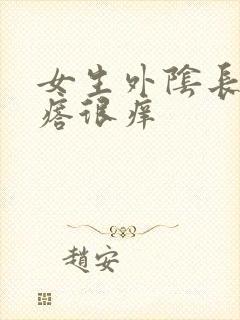 女生外陰長
痞很痒
趙安